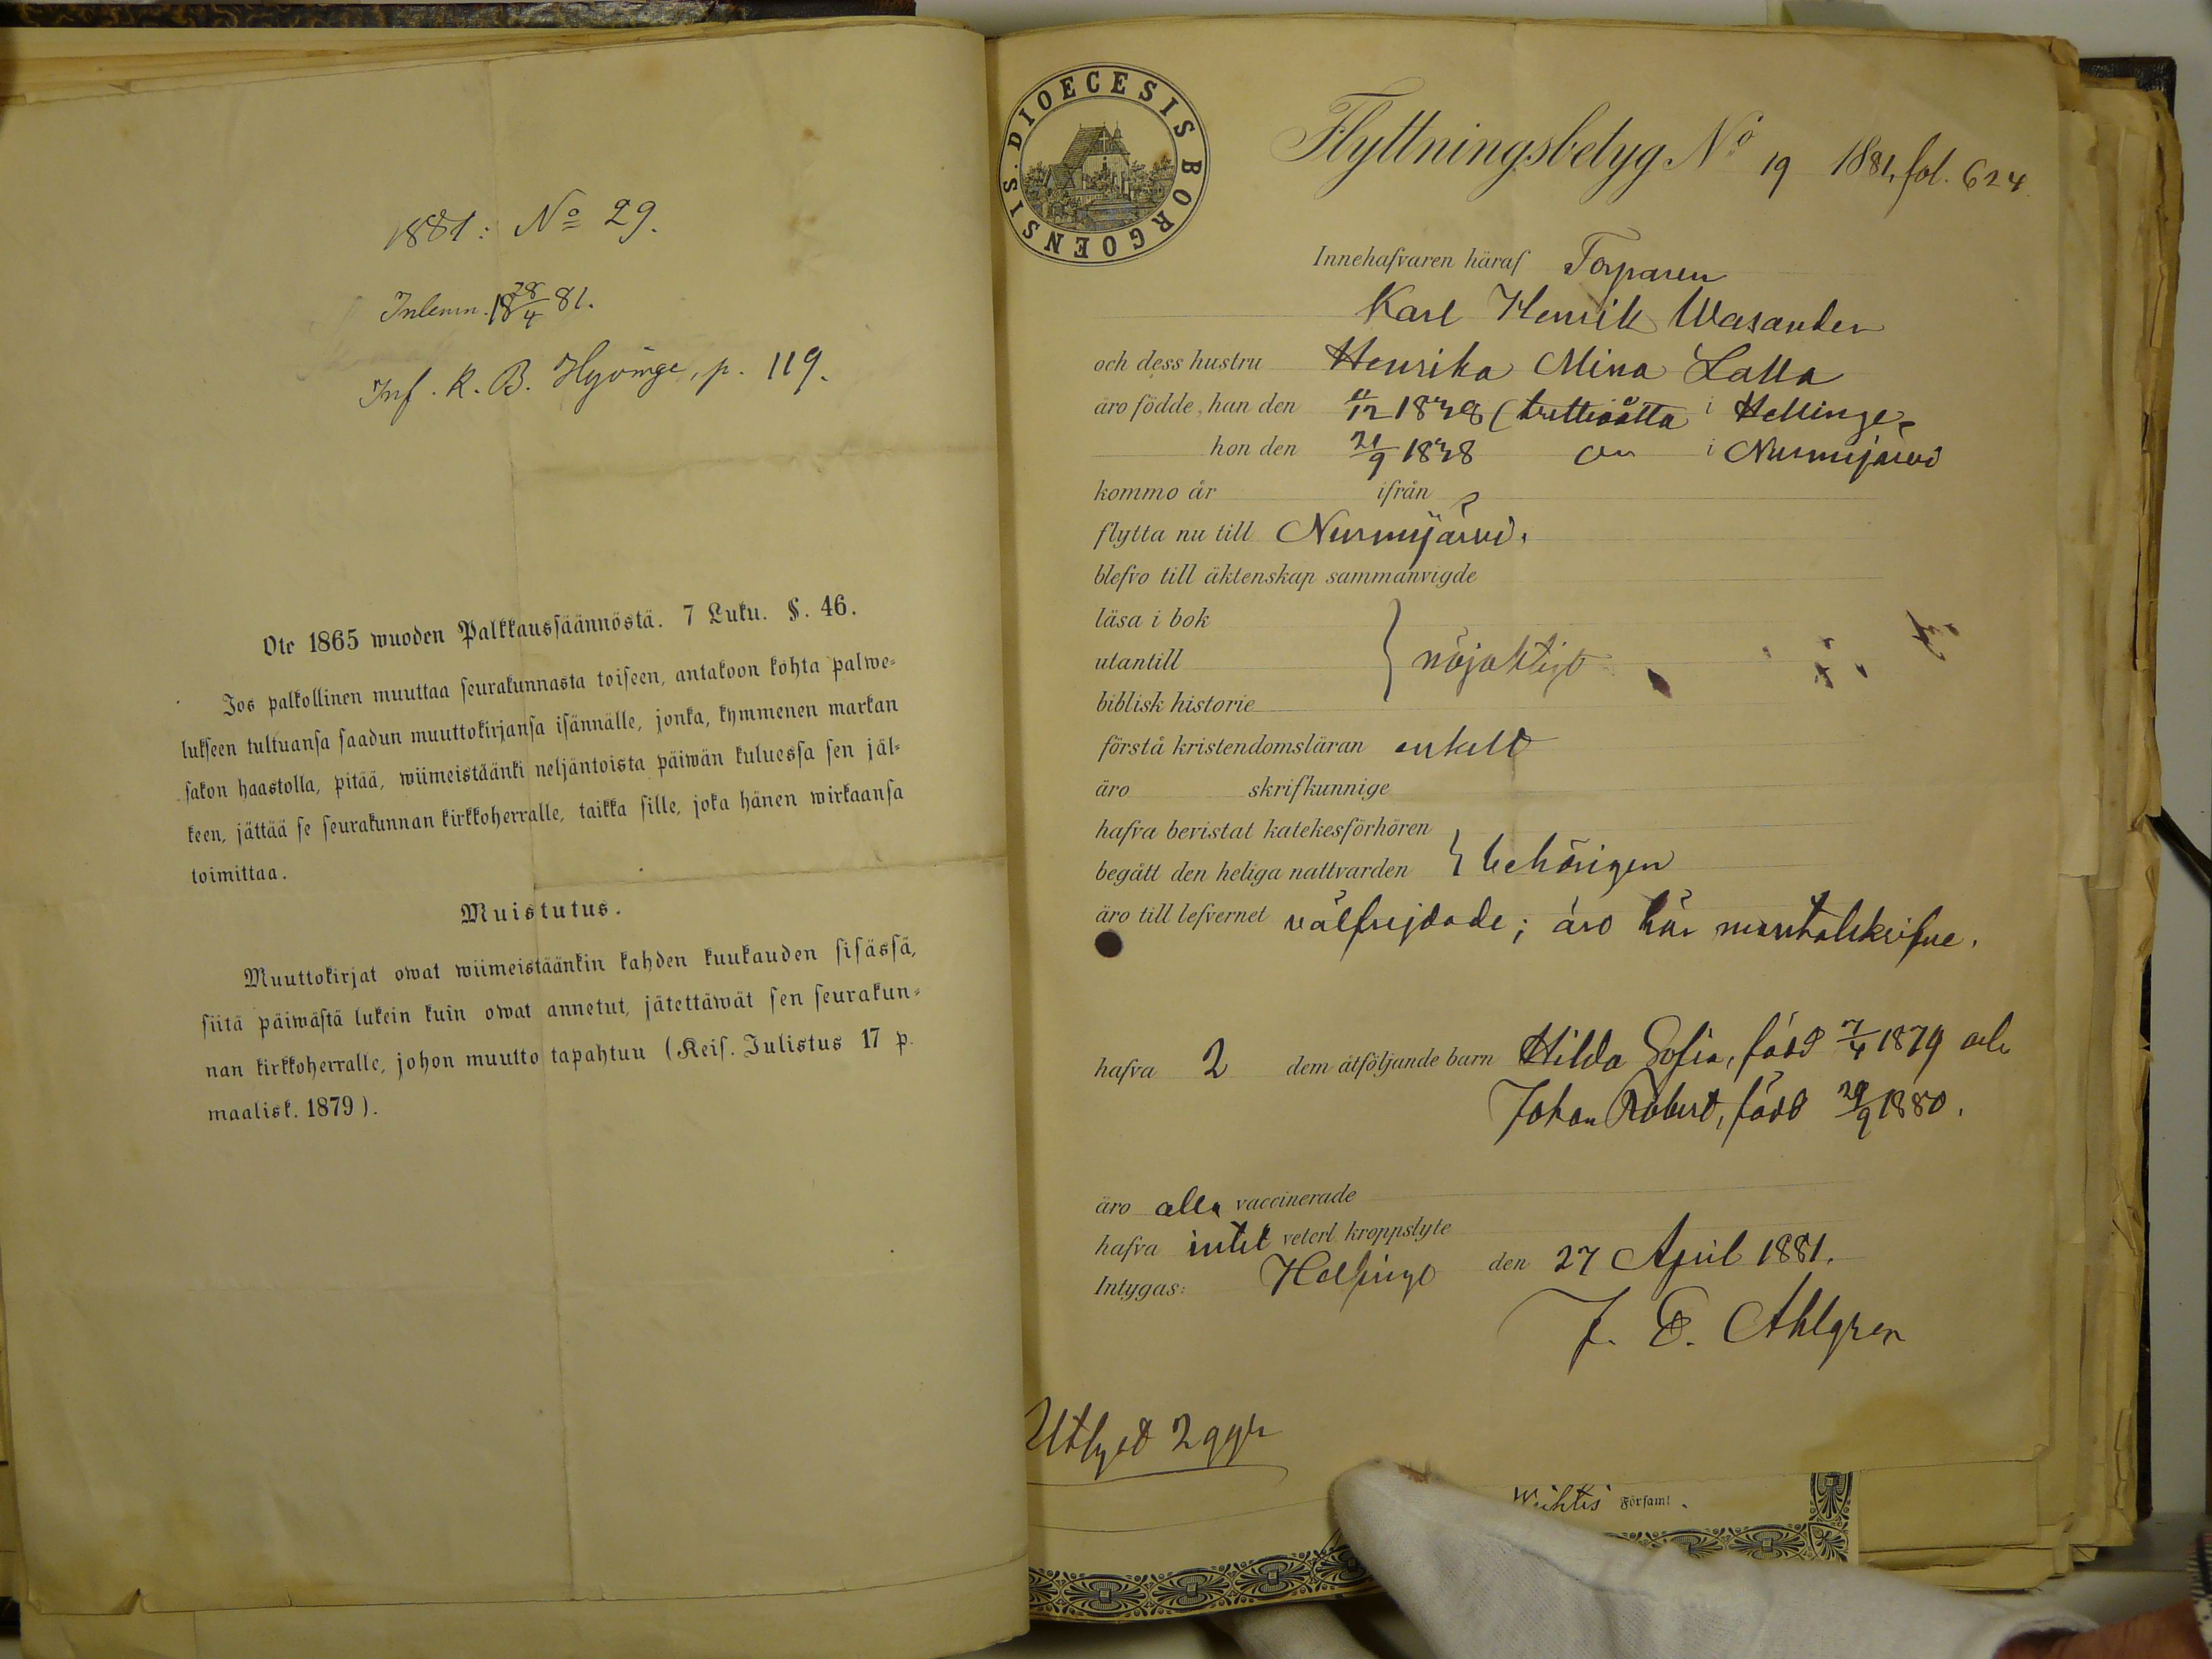 1881: No 29.
Inlemn. 18 28/4 81.
Inf. K. B. Hyvinge, p. 119.
Ote 1865 wuoden Palkkaussäännöstä. 7 Luku. §. 46.
Jos palkollinen muuttaa seurakunnasta toiseen, antakoon kohta palwe-
lukseen tultuansa saadun muuttokirjansa isännälle, jonka, kymmenen markan
sakon haastolla, pitää, wiimeistäänki neljäntoista päiwän kuluessa sen jäl-
keen, jättää se seurakunnan kirkkoherralle, taikka sille, joka hänen wirkaansa
toimittaa.
Muistutus.
Muuttokirjat owat wiimeistäänkin kahden kuukauden sisässä,
siitä päiwästä lukein kuin owat annetut, jätettäwät sen seurakun-
nan kirkkoherralle, johon muutto tapahtuu (Keis. Julistus 17 p.
maalisk. 1879).
DIOECESIS BORGOENSIS.
Flyttningsbetyg No 19 1881, fol. 624
Innehafvaren häraf Torparen
Karl Henrik Wasander
och dess hustru Henrika Mina Lalla
äro födde, han den /12 1838 (trettioåtta i Hellinge,
hon den 21/9 1838 i Nurmijärvi
kommo år ifrån
flytta nu till Nurmijärvi.
blefvo till äktenskap sammanvigde
läsa i bok
utantill } nöjaktigt
biblisk historie
förstå kristendomsläran enkelt
äro skrifkunnige
hafva bevistat katekesförhören
begått den heliga nattvarden } behörigen
äro till lefvernet välfrejdade; äro här mantalskrifne.
hafva 2 dem åtföljande barn Hilda Sofia, född 7/4 1879 och
Johan Robert, född 29/9 1880.
äro alla vaccinerade
hafva intet veterl. kroppslyte
Intygas: Helsinge den 27 April 1881.
J. E. Ahlgren
2 ggr
Wichtis Församl.